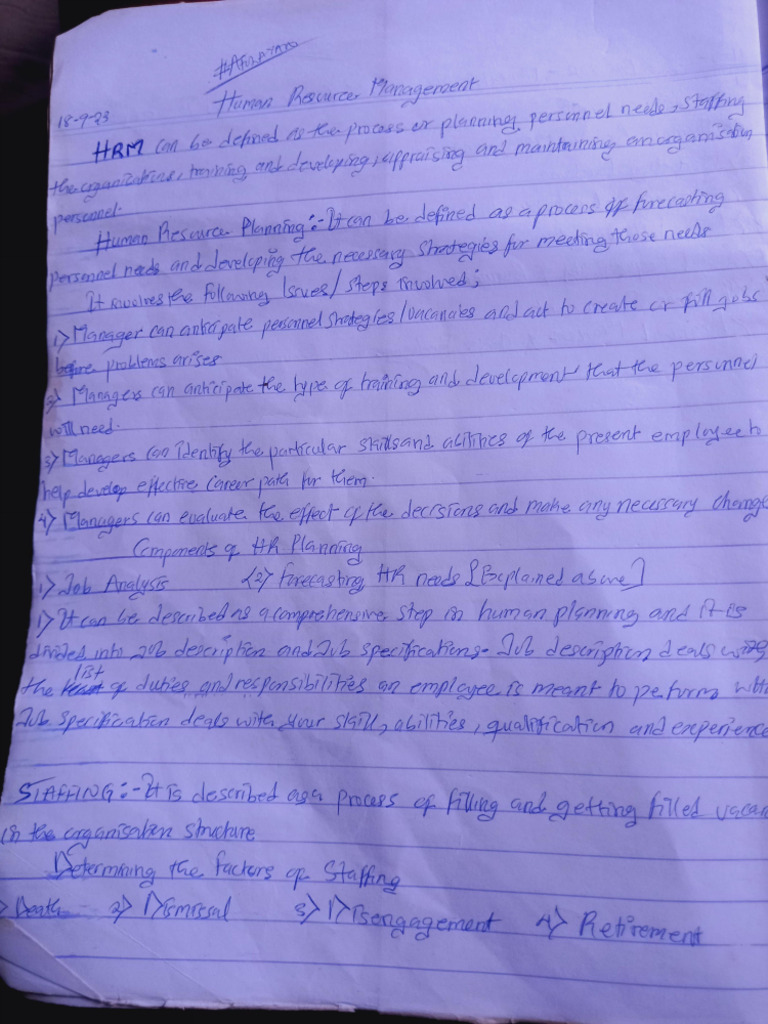 #AFOLAYAN
Human Resource Management
18-9-23
HRM can be defined as the process or planning personnel needs, staffing
the organizations, training and developing, appraising and maintaining an organisation
personnel.
Human Resource Planning:- It can be defined as a process of forecasting
personnel needs and developing the necessary strategies for meeting those needs
It involves the following Issues/ steps involved;
1) Manager can anticipate personnel strategies/vacancies and act to create or fill jobs
before problems arises
2) Managers can anticipate the type of training and development that the personnel
will need.
3) Managers can identify the particular skills and abilities of the present employee to
help develop effective career path for them.
4) Managers can evaluate the effect of the decisions and make any necessary change
Components of HR Planning
1) Job Analysis (2) forecasting HR needs [Explained above]
1) It can be described as a comprehensive step in human planning and it is
divided into job description and Job specifications. Job description deals with
the list of duties and responsibilities an employee is meant to perform
Job specification deals with your skill, abilities, qualification and experience
STAFFING:- It is described as a process of filling and getting filled vacan
in the organisation structure
Determining the factors of Staffing
Death 2) Dismissal 3) Disengagement 4) Retirement